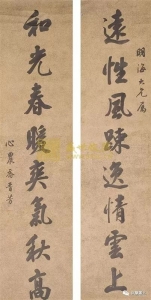 遠性風踈逸情雲上
明海大兄屬
和光春暖爽氣秋高
心農